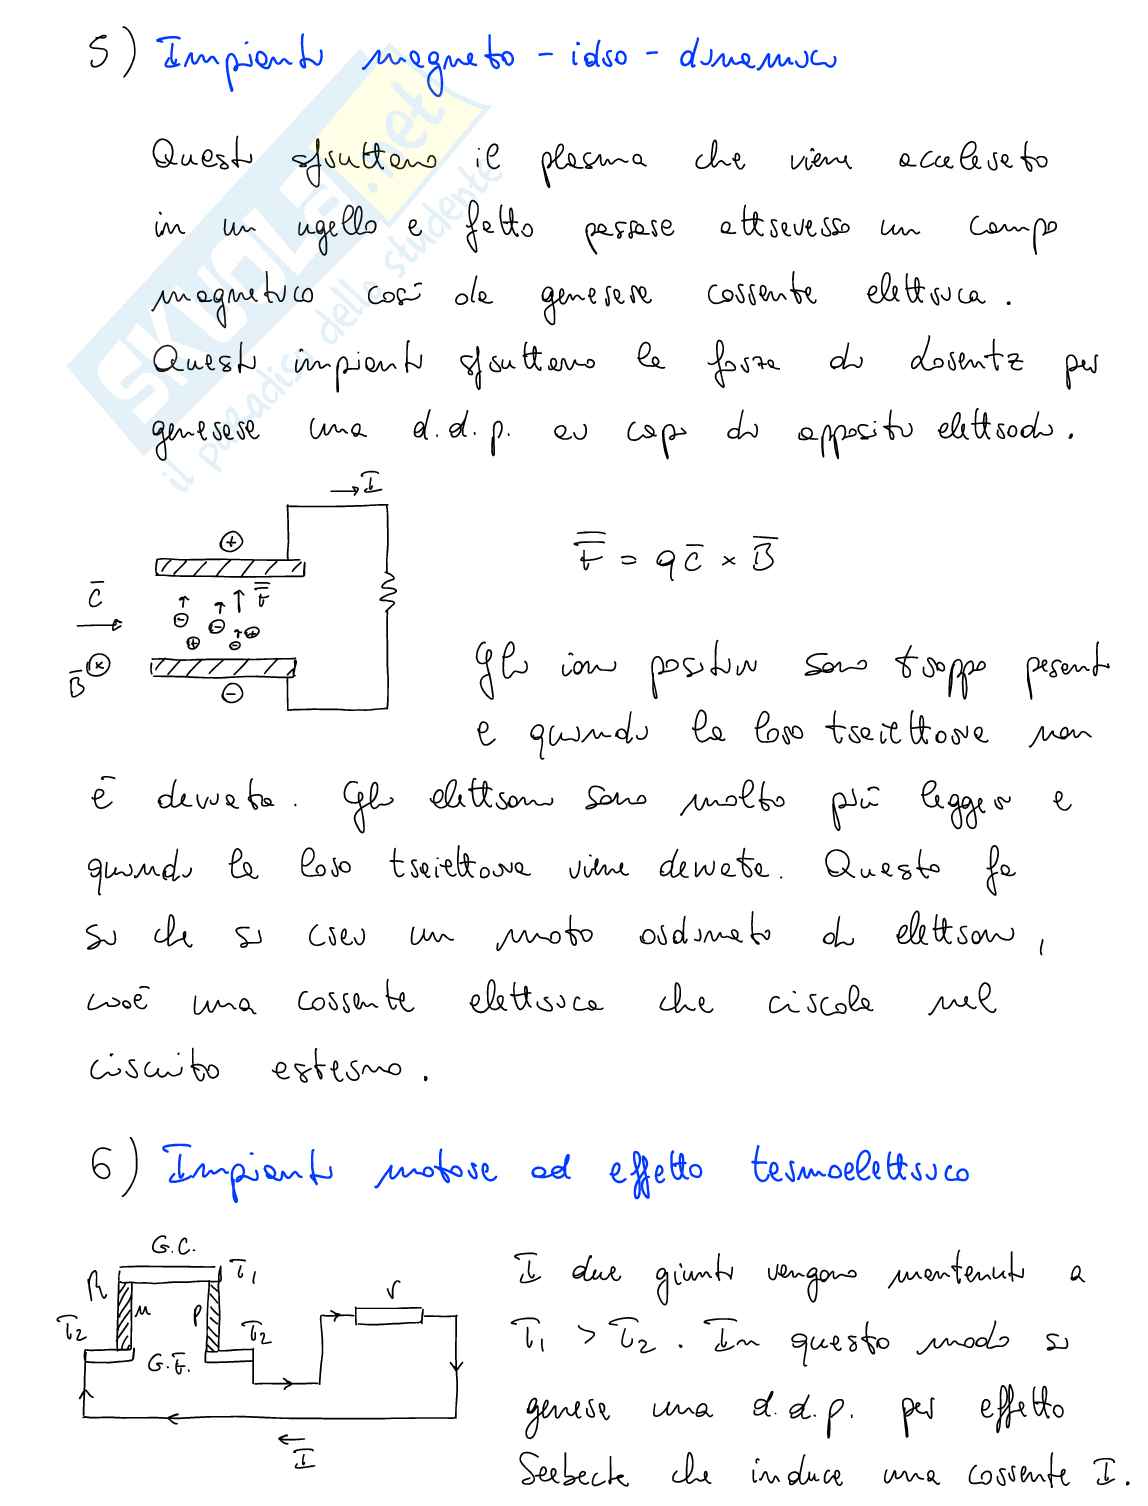 5) Impianti magneto - idro - dinamici
Questi sfruttano il plasma che viene accelerato
in un ugello e fatto passare attraverso un campo
magnetico così da generare corrente elettrica.
Questi impianti sfruttano la forza di Lorentz per
generare una d.d.p. ai capi di appositi elettrodi.
→ I
+
F = q c × B
c
F
- - + - +
B ×
-
Gli ioni positivi sono troppo pesanti
e quindi la loro traiettoria non
è deviata. Gli elettroni sono molto più leggeri e
quindi la loro traiettoria viene deviata. Questo fa
si che si crei un moto ordinato di elettroni,
cioè una corrente elettrica che circola nel
circuito esterno.
6) Impianti motore ad effetto termoelettrico
G.C.
R T1 r
n p
T2 T2
G.F.
← I
I due giunti vengono mantenuti a
T1 > T2. In questo modo si
genera una d.d.p. per effetto
Seebeck che induce una corrente I.
SKUOLA.net
il paradiso dello studente